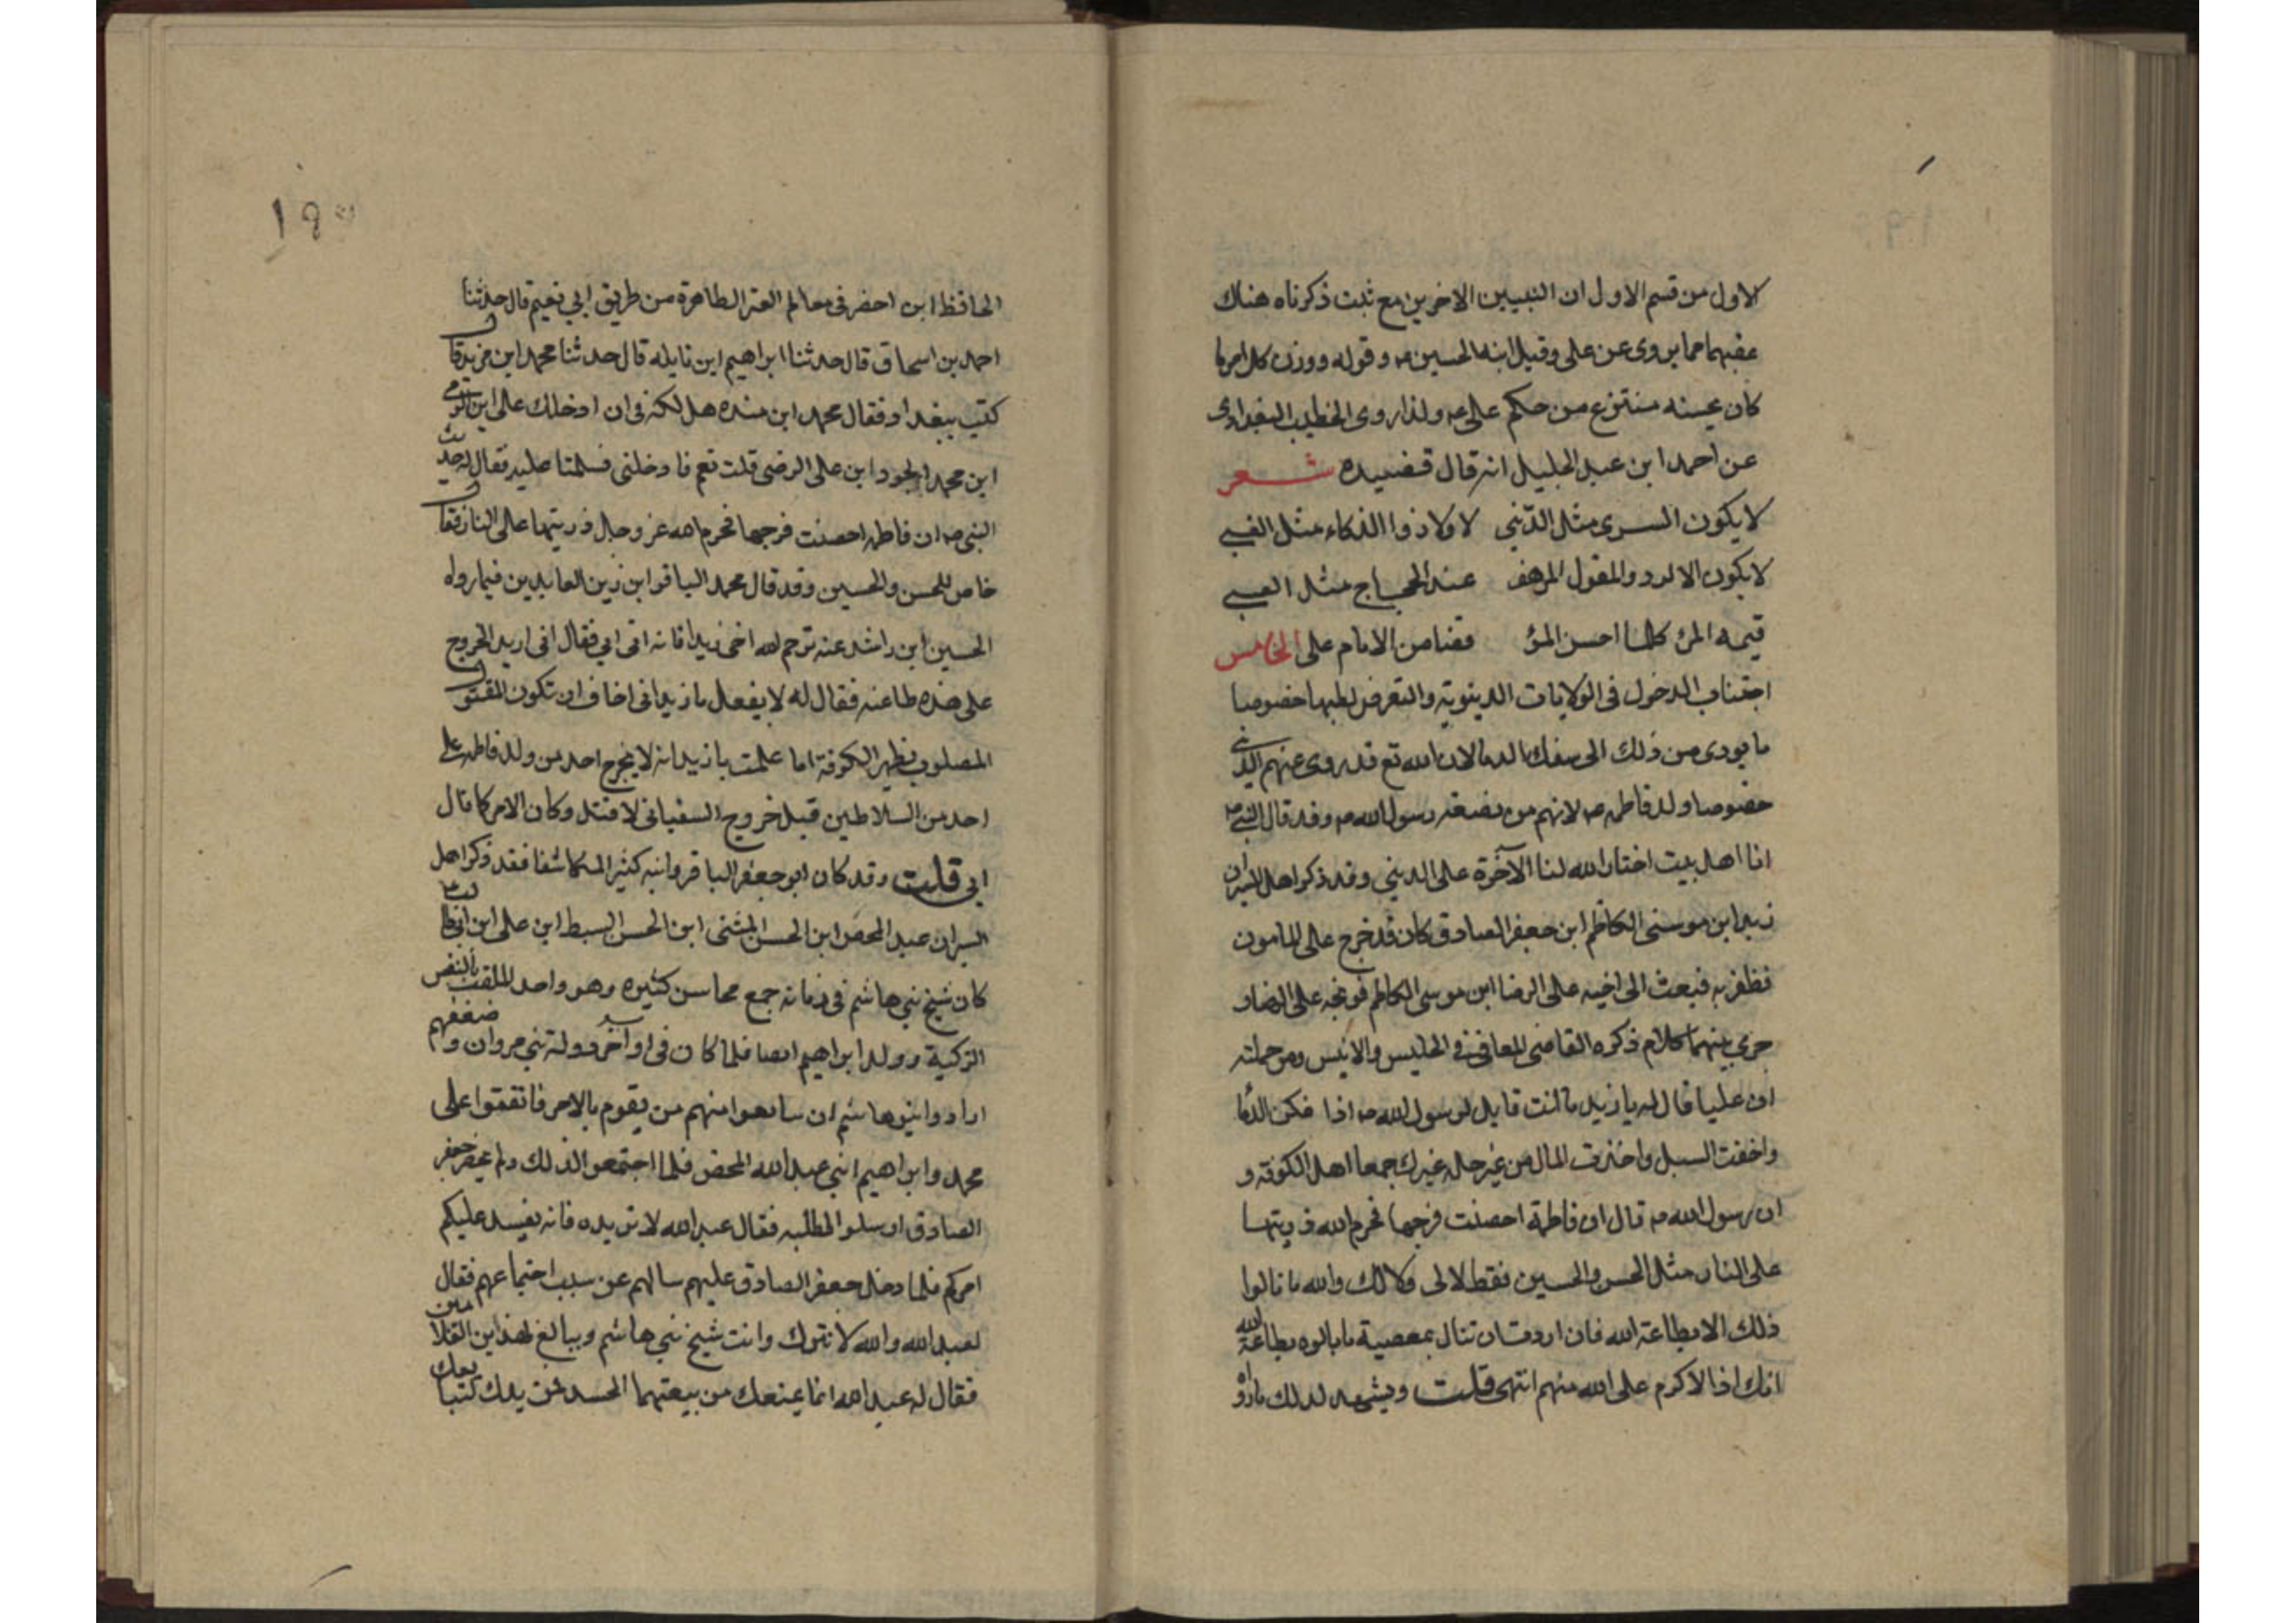 الاول من قسم الاول ان النبيين الاخرين مع ثبت ذكرناه هناك
عقبهما مما يروى عن على وقيل ابنه الحسين ع وقوله ووزن كل امرء ما
كان يحسنه منتزع من حكم على ع ولذا روى الخطيب البغدادى
عن احمد ابن عبد الجليل انه قال قصيده شعر
لا يكون السرى مثل الدّنى لا ولا ذوا الذكاء مثل الغبى
لا يكون الالد والمقول المرهف عند الحجاج مثل العيى
قيمه المرء كلما احسن المرؤ قضا من الامام على الخامس
اجتناب الدخول فى الولايات الدينويّة والتعرض لطلبها خصوصا
ما يودى من ذلك الى سفك الدما لان الله تع قد روى عنهم الدنى
خصوصا ولد فاطمه ع لانهم من بضعة رسول الله ص وقد قال النبى ص
انا اهل بيت اختار الله لنا الآخرة على الدينى وقد ذكر اهل السير ان
زيد ابن موسى الكاظم ابن جعفر الصادق كان قد خرج على المامون
فظفر به فبعث الى اخيه على الرضا ابن موسى الكاظم فوبخه على الرضا و
جرى بينهما كلام ذكره القاضى المعافى فى الجليس والانيس ومن جملته
ان عليا قال له يا زيد ما انت قايل لرسول الله ص اذا فكن الدما
واخفت السبل واخذت المال من غير حله غيرك جمعا اهل الكوفة و
ان رسول الله ص قال ان فاطمة احصنت فرجها فحرم الله ذريتها
على النار مثل الحسن والحسين فقط لا لى ولا لك والله ما نالوا
ذلك الا بطاعة الله فان اردت ان تنال بمعصية ما نالوه بطاعة الله
انك اذا لاكرم على الله منهم انتهى قلت ويشهد لذلك ما رواه
١٩٥
الحافظ ابن اخضر فى معالم العترة الطاهرة من طريق ابى نعيم قال حدثنا
احمد بن اسحاق قال حدثنا ابراهيم ابن نايله قال حدثنا محمد ابن مزيد قال
كنت ببغداد فقال محمد ابن منده هل لك فى ان ادخلك على ابن الرضى
ابن محمد الجود ابن على الرضى قلت نعم فادخلنى فسلمنا عليه فقال له حديث
النبى ص ان فاطمه احصنت فرجها فحرم الله عز وجل ذريتها على النار فقال
خاص للحسن والحسين وقد قال محمد الباقر ابن زين العابدين فيما رواه
الحسين ابن راشد عنه ترحم الله اخى زيدا فانه اتى ابى فقال انى اريد الخروج
على هذه طاغيه فقال له لا يفعل يا زيد انى اخاف ان تكون المقتول
المصلوب بظهر الكوفة اما علمت يا زيد انه لا يخرج احد من ولد فاطمه على
احد من السلاطين قبل خروج السفيانى لا قتل وكان الامر كما قال
ابى قلت وقد كان ابو جعفر الباقر وابنه كثير المكاشفا فقد ذكر اهل
السير ان عبد المحض ابن الحسن المثنى ابن الحسن السبط ابن على ابن ابى طالب ع
كان شيخ بنى هاشم فى زمانه جمع محاسن كثيره وهو واحد الملقب بالنفس
الزكية وولد ابراهيم ايصا فلما كان فى اواخر دولة بنى مروان وام ضعفهم
ارادوا بنوا هاشم ان سابعوا منهم من يقوم بالامر فاتفقوا على
محمد وابراهيم ابنى عبد الله المحض فلما اجتمعوا لذلك ولم يحضر جعفر
الصادق ارسلوا لطلبه فقال عبد الله لا تريده فانه يفسد عليكم
امركم فلما دخل جعفر الصادق عليهم سالهم عن سبب اجتماعهم فقال
لعبد الله والله لا نترك وانت شيخ بنى هاشم ويبالغ لهذين الغلامين
فقال له عبد الله انما يمنعك من بيعتهما الحسد